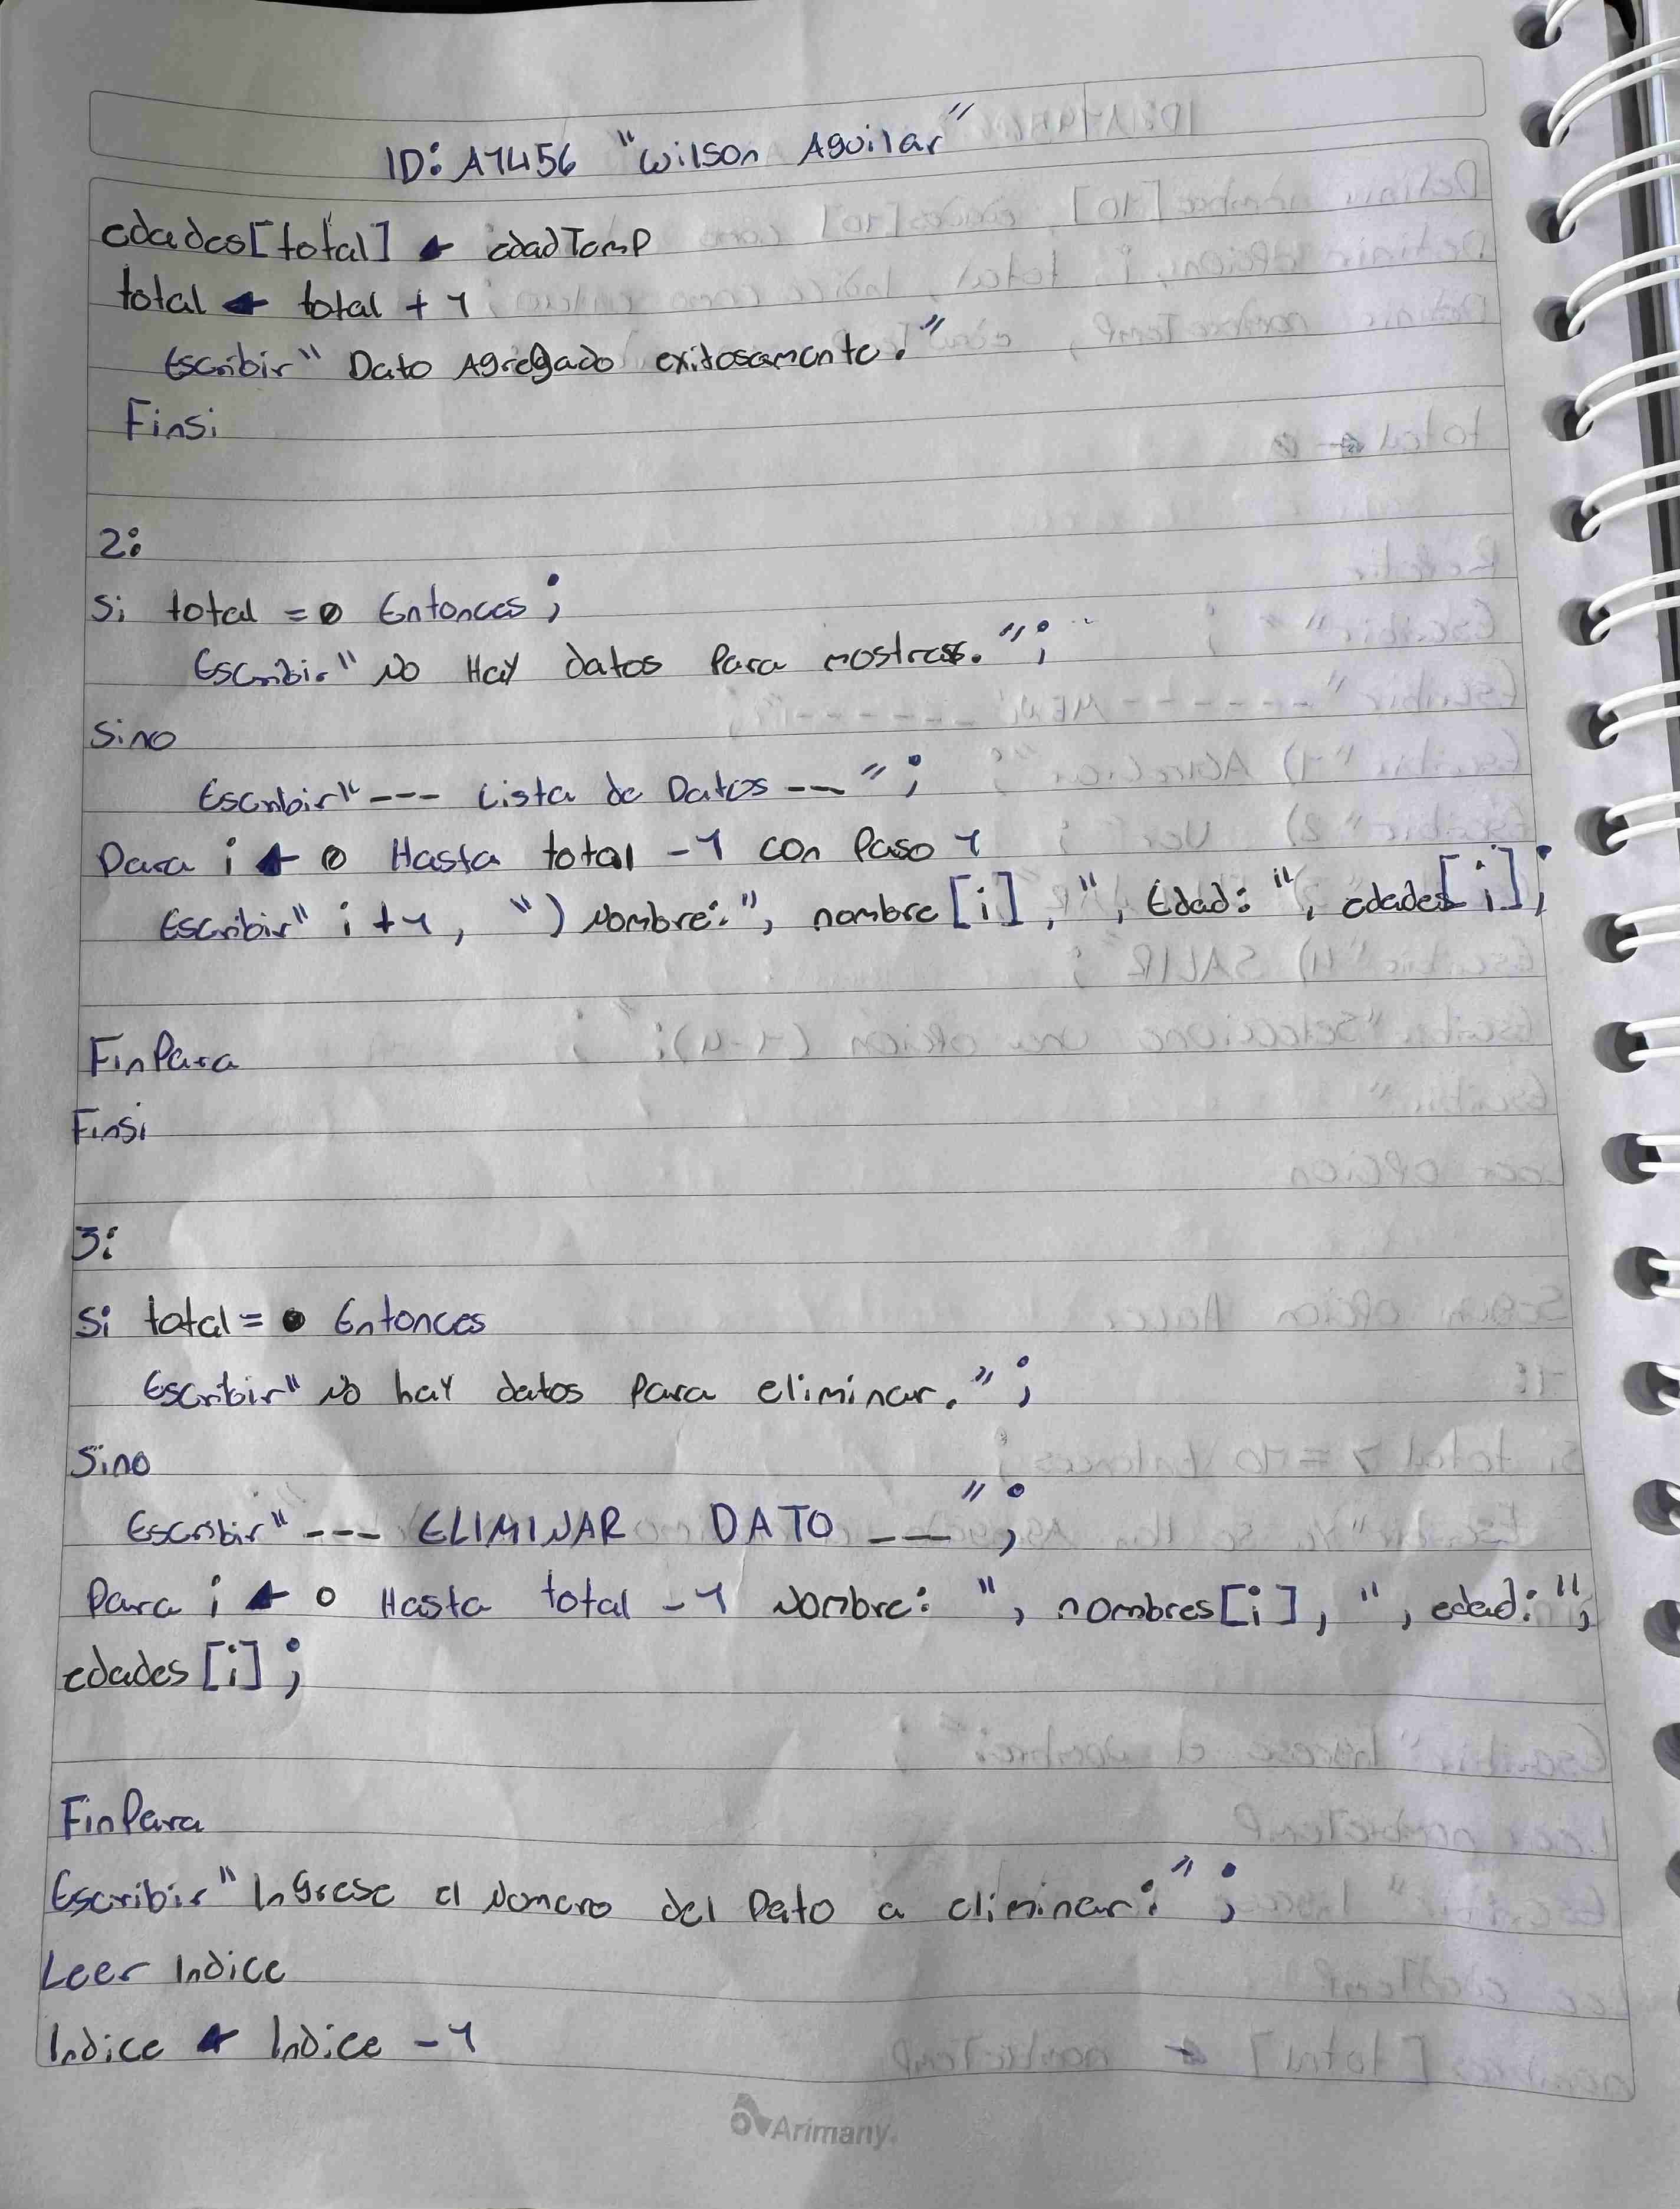 ID: A1456 "Wilson Aguilar"
edades[total] ← edadTemp
total ← total + 1
Escribir" Dato Agregado exitosamente."
Finsi
2:
Si total = 0 Entonces;
Escribir" No Hay datos Para mostrar.";
Sino
Escribir"--- Lista de Datos ---";
Para i ← 0 Hasta total -1 con Paso 1
Escribir" i +1, ") Nombre:", nombre[i], ", Edad: ", edades[i];
FinPara
Finsi
3:
Si total = 0 Entonces
Escribir" No hay datos Para eliminar.";
Sino
Escribir"--- ELIMINAR DATO ---";
Para i ← 0 Hasta total -1 Nombre: ", nombres[i], ", edad: ",
edades[i];
FinPara
Escribir" Ingrese el Numero del Dato a eliminar:";
Leer Indice
Indice ← Indice -1
Arimany